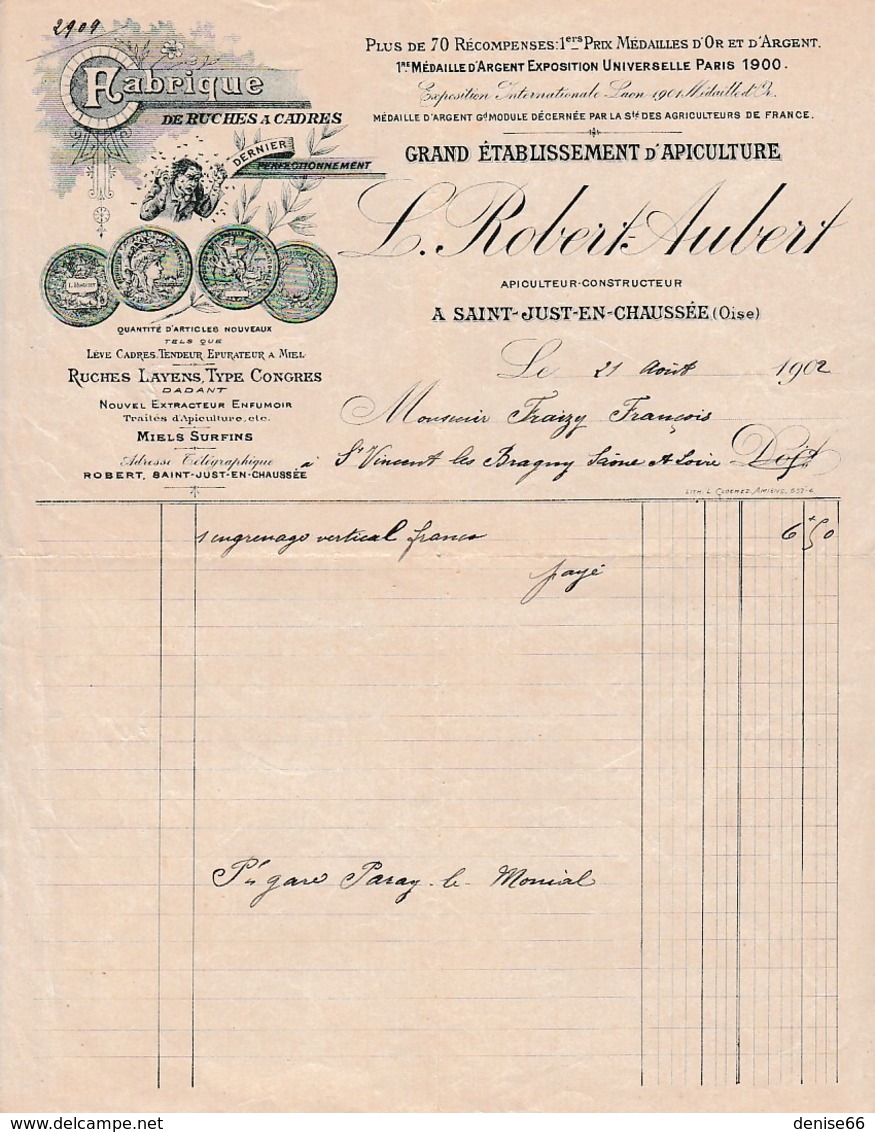 2909
Fabrique
DE RUCHES A CADRES
DERNIER
PERFECTIONNEMENT
QUANTITÉ D'ARTICLES NOUVEAUX
TELS QUE
LÈVE CADRES, TENDEUR, EPURATEUR A MIEL
RUCHES LAYENS, TYPE CONGRES
DADANT
NOUVEL EXTRACTEUR ENFUMOIR
Traités d'Apiculture, etc.
MIELS SURFINS
Adresse Télégraphique
ROBERT, SAINT-JUST-EN-CHAUSSÉE
PLUS DE 70 RÉCOMPENSES: 1ers PRIX MÉDAILLES D'OR ET D'ARGENT.
1RE MÉDAILLE D'ARGENT EXPOSITION UNIVERSELLE PARIS 1900.
Exposition Internationale Laon 1901 Médaille d'Or.
MÉDAILLE D'ARGENT Gd MODULE DÉCERNÉE PAR LA Sté DES AGRICULTEURS DE FRANCE.
GRAND ÉTABLISSEMENT D'APICULTURE
L. Robert-Aubert
APICULTEUR-CONSTRUCTEUR
A SAINT-JUST-EN-CHAUSSÉE (Oise)
Le 21 Août 1902
Monsieur Fraizy François
à St Vincent les Bragny Saône & Loire Doit
LITH. L. CLOCHEZ, AMIENS, 557-6
1 engrenage vertical franco 6f50
payé
Pr gare Paray-le-Monial
denise66